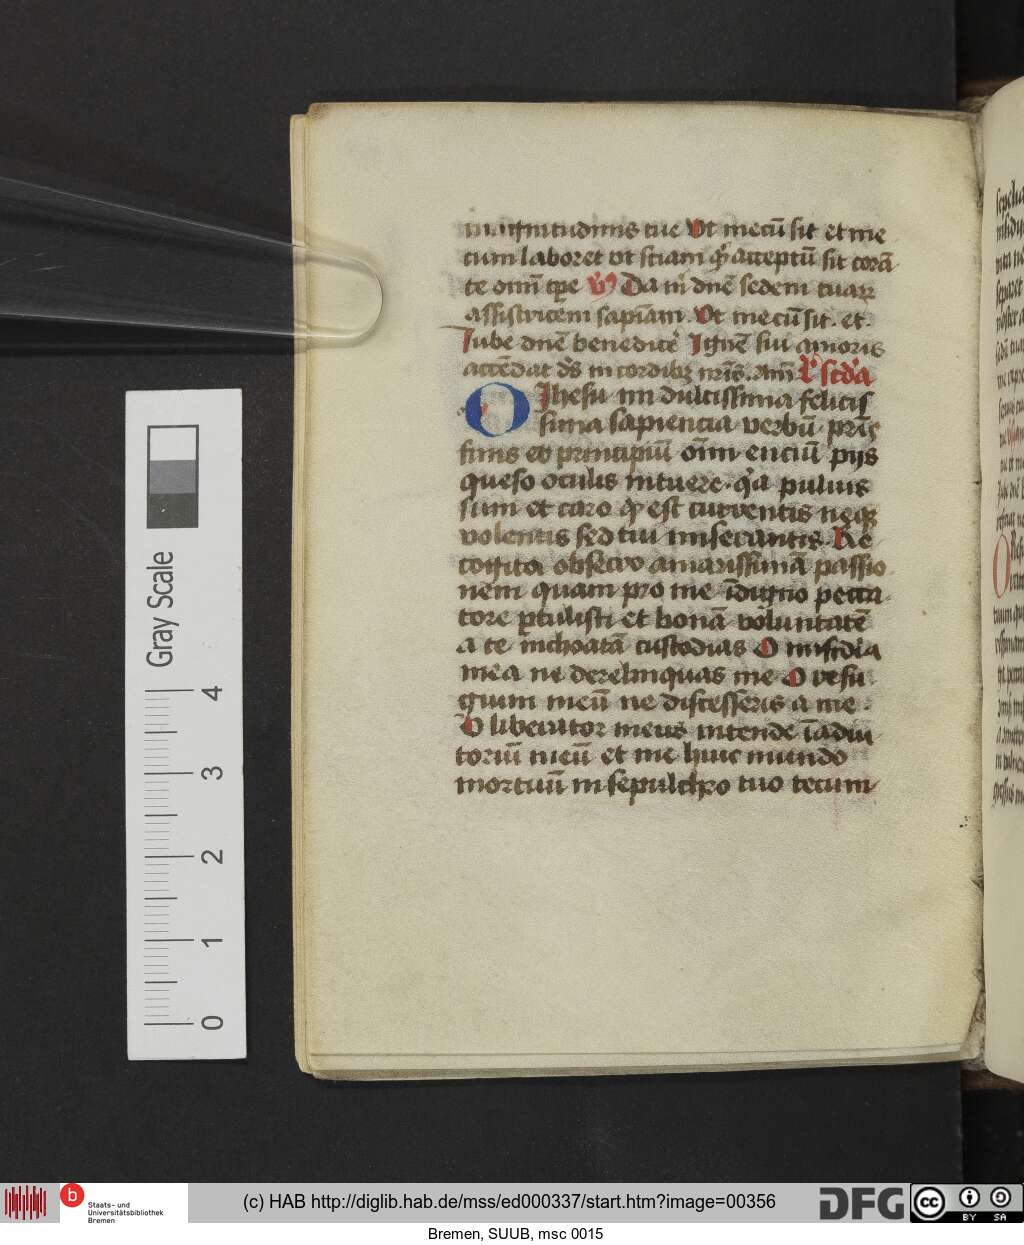 magnitudinis tue Ut mecū sit et me
cum laboret ut sciam qͥ acceptū sit corā
te omī tp̄e V̓ Da m̓ dn̄e sedem tuaꝝ
assistricem sapiam. Ut mecū sit. et.
Iube dn̄e benedic̓e Ignē sui amoris
accēdat ds̄ in cordibꝫ nr̄is. Am̄ Lc̓ scd̓a
O Ihesu mi dulcissima felicis
sima sapiencia verbū pr̄is
finis et principiū oīm enciū piis
queso oculis intuere. qͣ pulvis
sum et caro qͥ est currentis neqꝫ
volentis sed tui miserantis. Re
cogita obsecro amarissimā passio
nem quam pro me īdigno pecca
tore ꝑtulisti et bonā voluntatē
a te inchoatā custodias O misc̄dia
mea ne derelinquas me O refu
gium meū ne discesseris a me.
O liberator meus intende ī adiu
toriū meū et me huic mundo
mortuū in sepulchro tuo tecum
Gray Scale
4
3
2
1
0
b
Staats- und
Universitätsbibliothek
Bremen
(c) HAB http://diglib.hab.de/mss/ed000337/start.htm?image=00356
DFG
cc BY SA
Bremen, SUUB, msc 0015